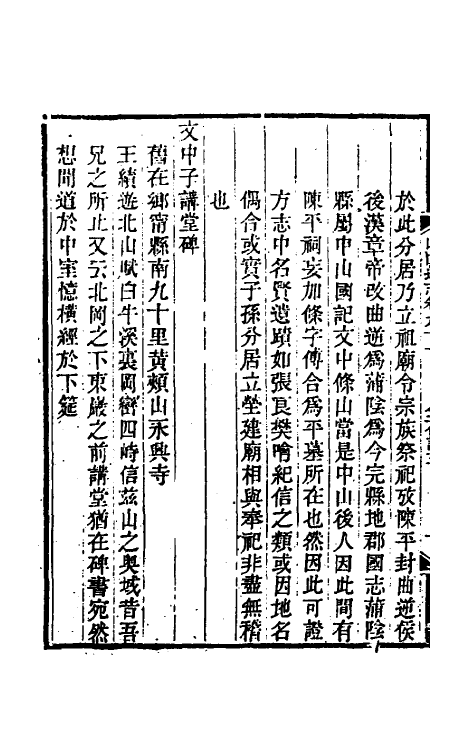 於此分居乃立祖廟令宗族祭祀攷陳平封曲逆侯
後漢章帝改曲逆爲蒲陰爲今完縣地郡國志蒲陰
縣屬中山國記文中條山當是中山後人因此間有
陳平祠妄加條字傅合爲平墓所在也然因此可證
方志中名賢遺蹟如張良樊噲紀信之類或因地名
偶合或實子孫分居立塋建廟相與奉祀非盡無稽
也
文中子講堂碑
舊在鄉甯縣南九十里黄頰山永興寺
王績遊北山賦白牛溪裏岡巒四峙信兹山之奧域昔吾
兄之所止又云北岡之下東巖之前講堂猶在碑書宛然
想聞道於中室憶橫經於下筵